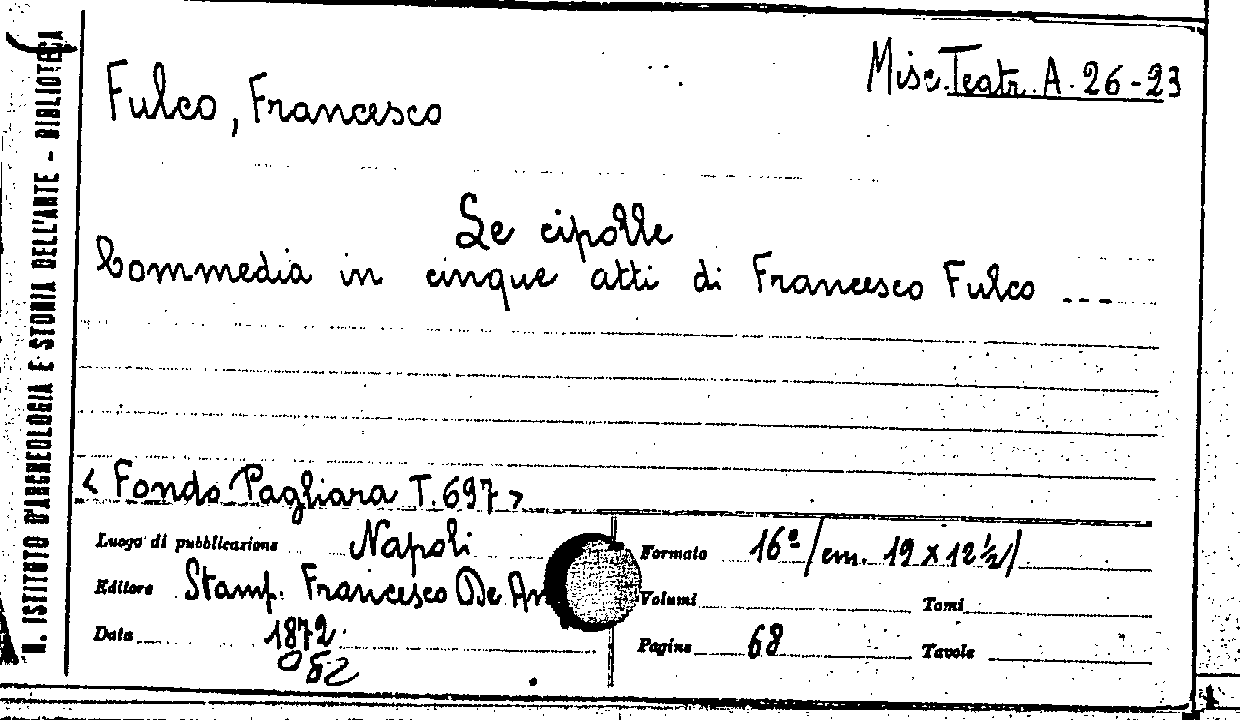 R. ISTITUTO D'ARCHEOLOGIA E STORIA DELL'ARTE - BIBLIOTECA
Misc. Teatr. A. 26-23
Fulco, Francesco
Le cipolle
Commedia in cinque atti di Francesco Fulco ---
< Fondo Pagliara T. 697 >
Luogo di pubblicazione Napoli
Editore Stamp. Francesco De An
Data 1872
Formato 16º /cm. 19 x 12½/
Volumi Tomi
Pagine 68 Tavole